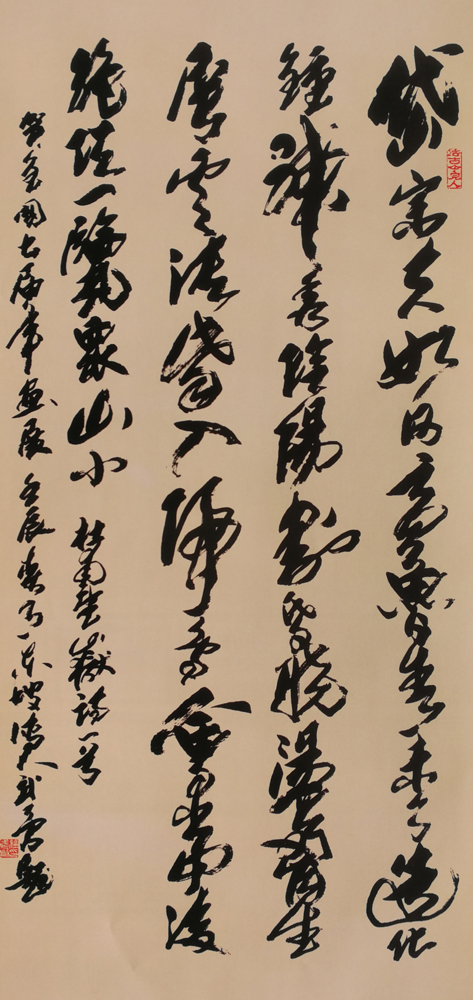 岱宗夫如何齊魯青未了造化
鍾神秀陰陽割昏曉盪胸生
層雲決眥入歸鳥會當凌
絕頂一覽眾山小 杜甫望嶽詩一首
全國七届書畫展 壬辰春月